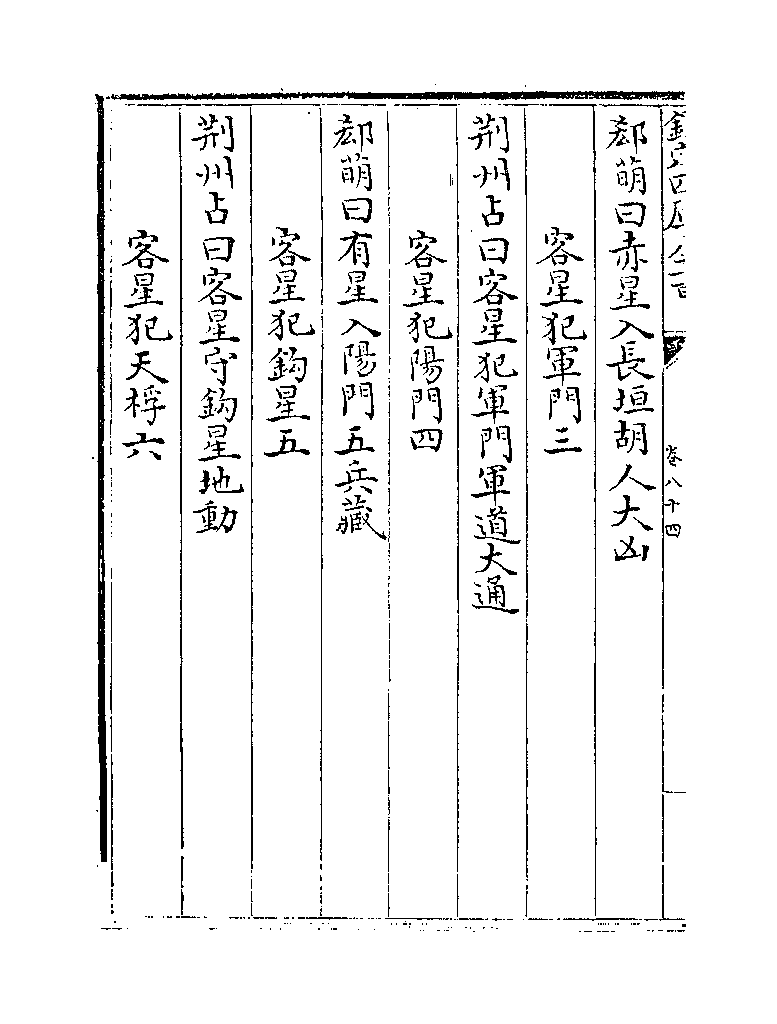 欽定四庫全書
卷八十四
郄萌曰赤星入長垣胡人大凶
客星犯軍門三
荆州占曰客星犯軍門軍道大通
客星犯陽門四
郄萌曰有星入陽門五兵藏
客星犯鈎星五
荆州占曰客星守鈎星地動
客星犯天桴六